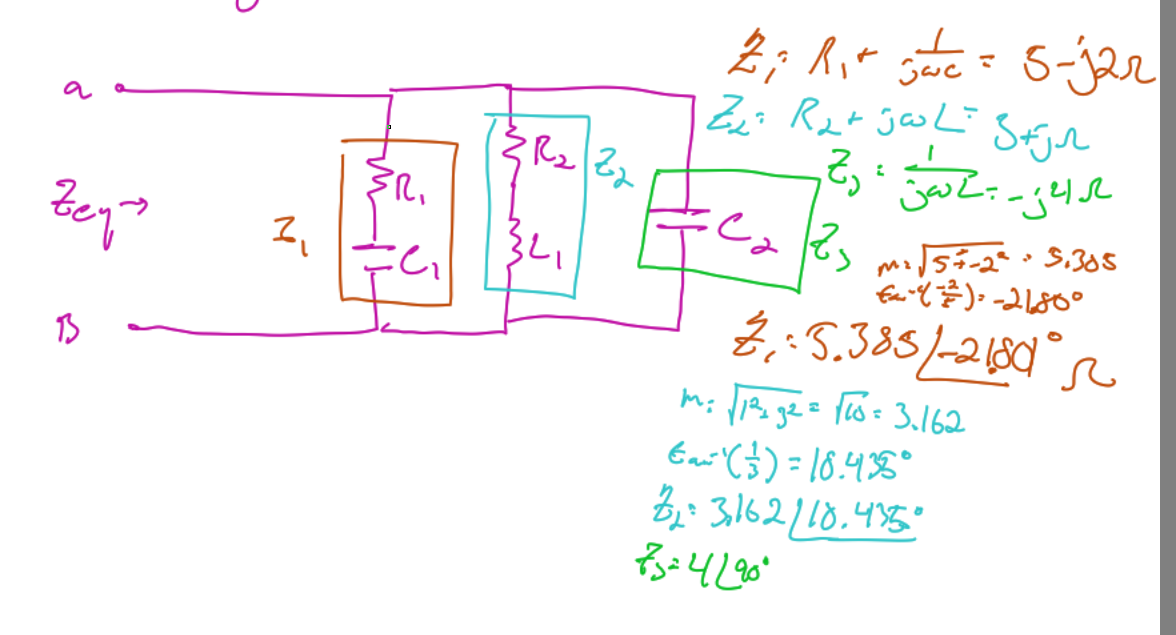 a
B
Zeq→
Z₁
R₁
C₁
R₂
L₁
Z₂
C₂
Z₃
Z₁: R₁ + 1/jωc = 5-j2Ω
Z₂: R₂ + jωL = 3+jΩ
Z₃: 1/jωL = -j4Ω
m: √5²+-2² = 5.385
tan⁻¹(-2/5) = -21.80°
Z₁: 5.385∠-21.801° Ω
m: √1²+3² = √10 = 3.162
tan⁻¹(1/3) = 18.435°
Z₂: 3.162∠18.435°
Z₃=4∠90°